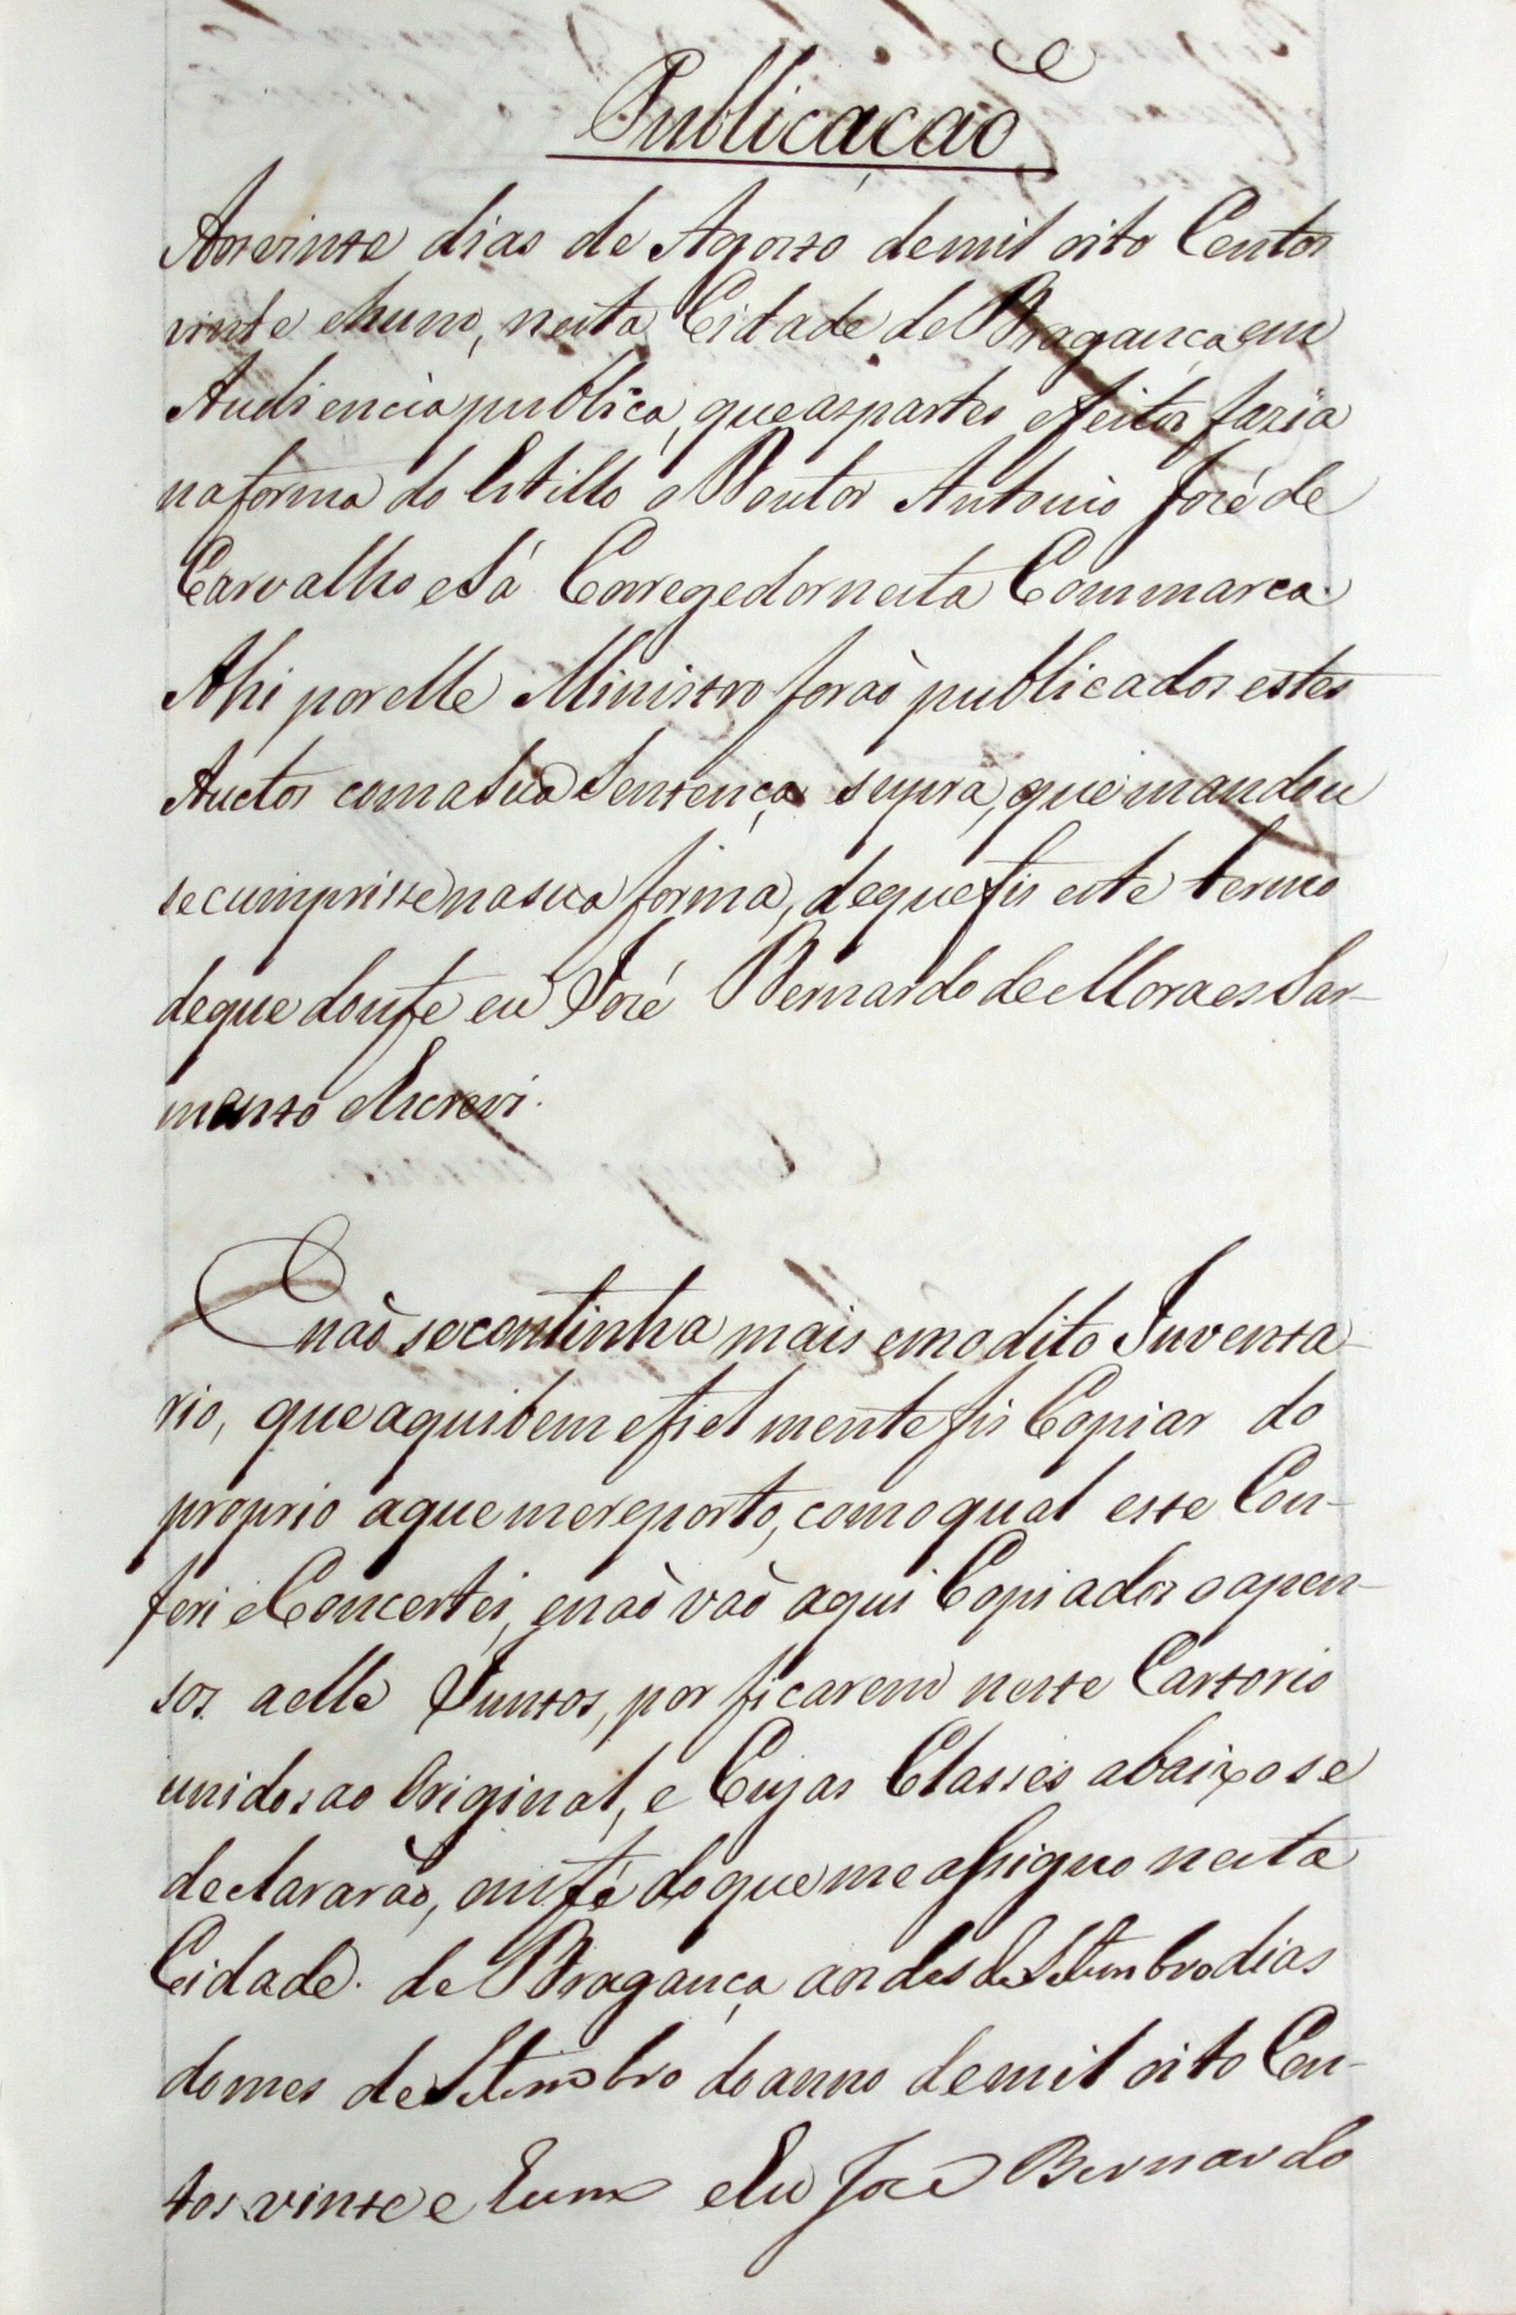 Publicação
Aos vinte dias de Agosto de mil oito Centos
vinte e hum, nesta Cidade de Bragança em
Audiencia publica, que as partes e feitos fazia
na forma do Estillo o Doutor Antonio José de
Carvalho e Sá Corregedor nesta Commarca
Ahi por elle Ministro forão publicados estes
Auctos com a sua Sentença supra, que mandou
se cumprisse na sua forma, de que fis este termo
de que dou fe eu José Bernardo de Moraes Sar-
mento e Escrevi.
E não se continha mais em o dito Inventa-
rio, que aqui bem e fiel mente fis Copiar do
proprio a que me reporto, com o qual este Con-
feri e Concertei, e não vão aqui Copiados o apen-
sos a elle Juntos, por ficarem neste Cartorio
unidos ao Original, e Cujas Classes abaixo se
declararão, em fé do que me assigno nesta
Cidade de Bragança aos des de Setembro dias
do mes de Setembro do anno de mil oito Cen-
tos vinte e hum e Eu José Bernardo